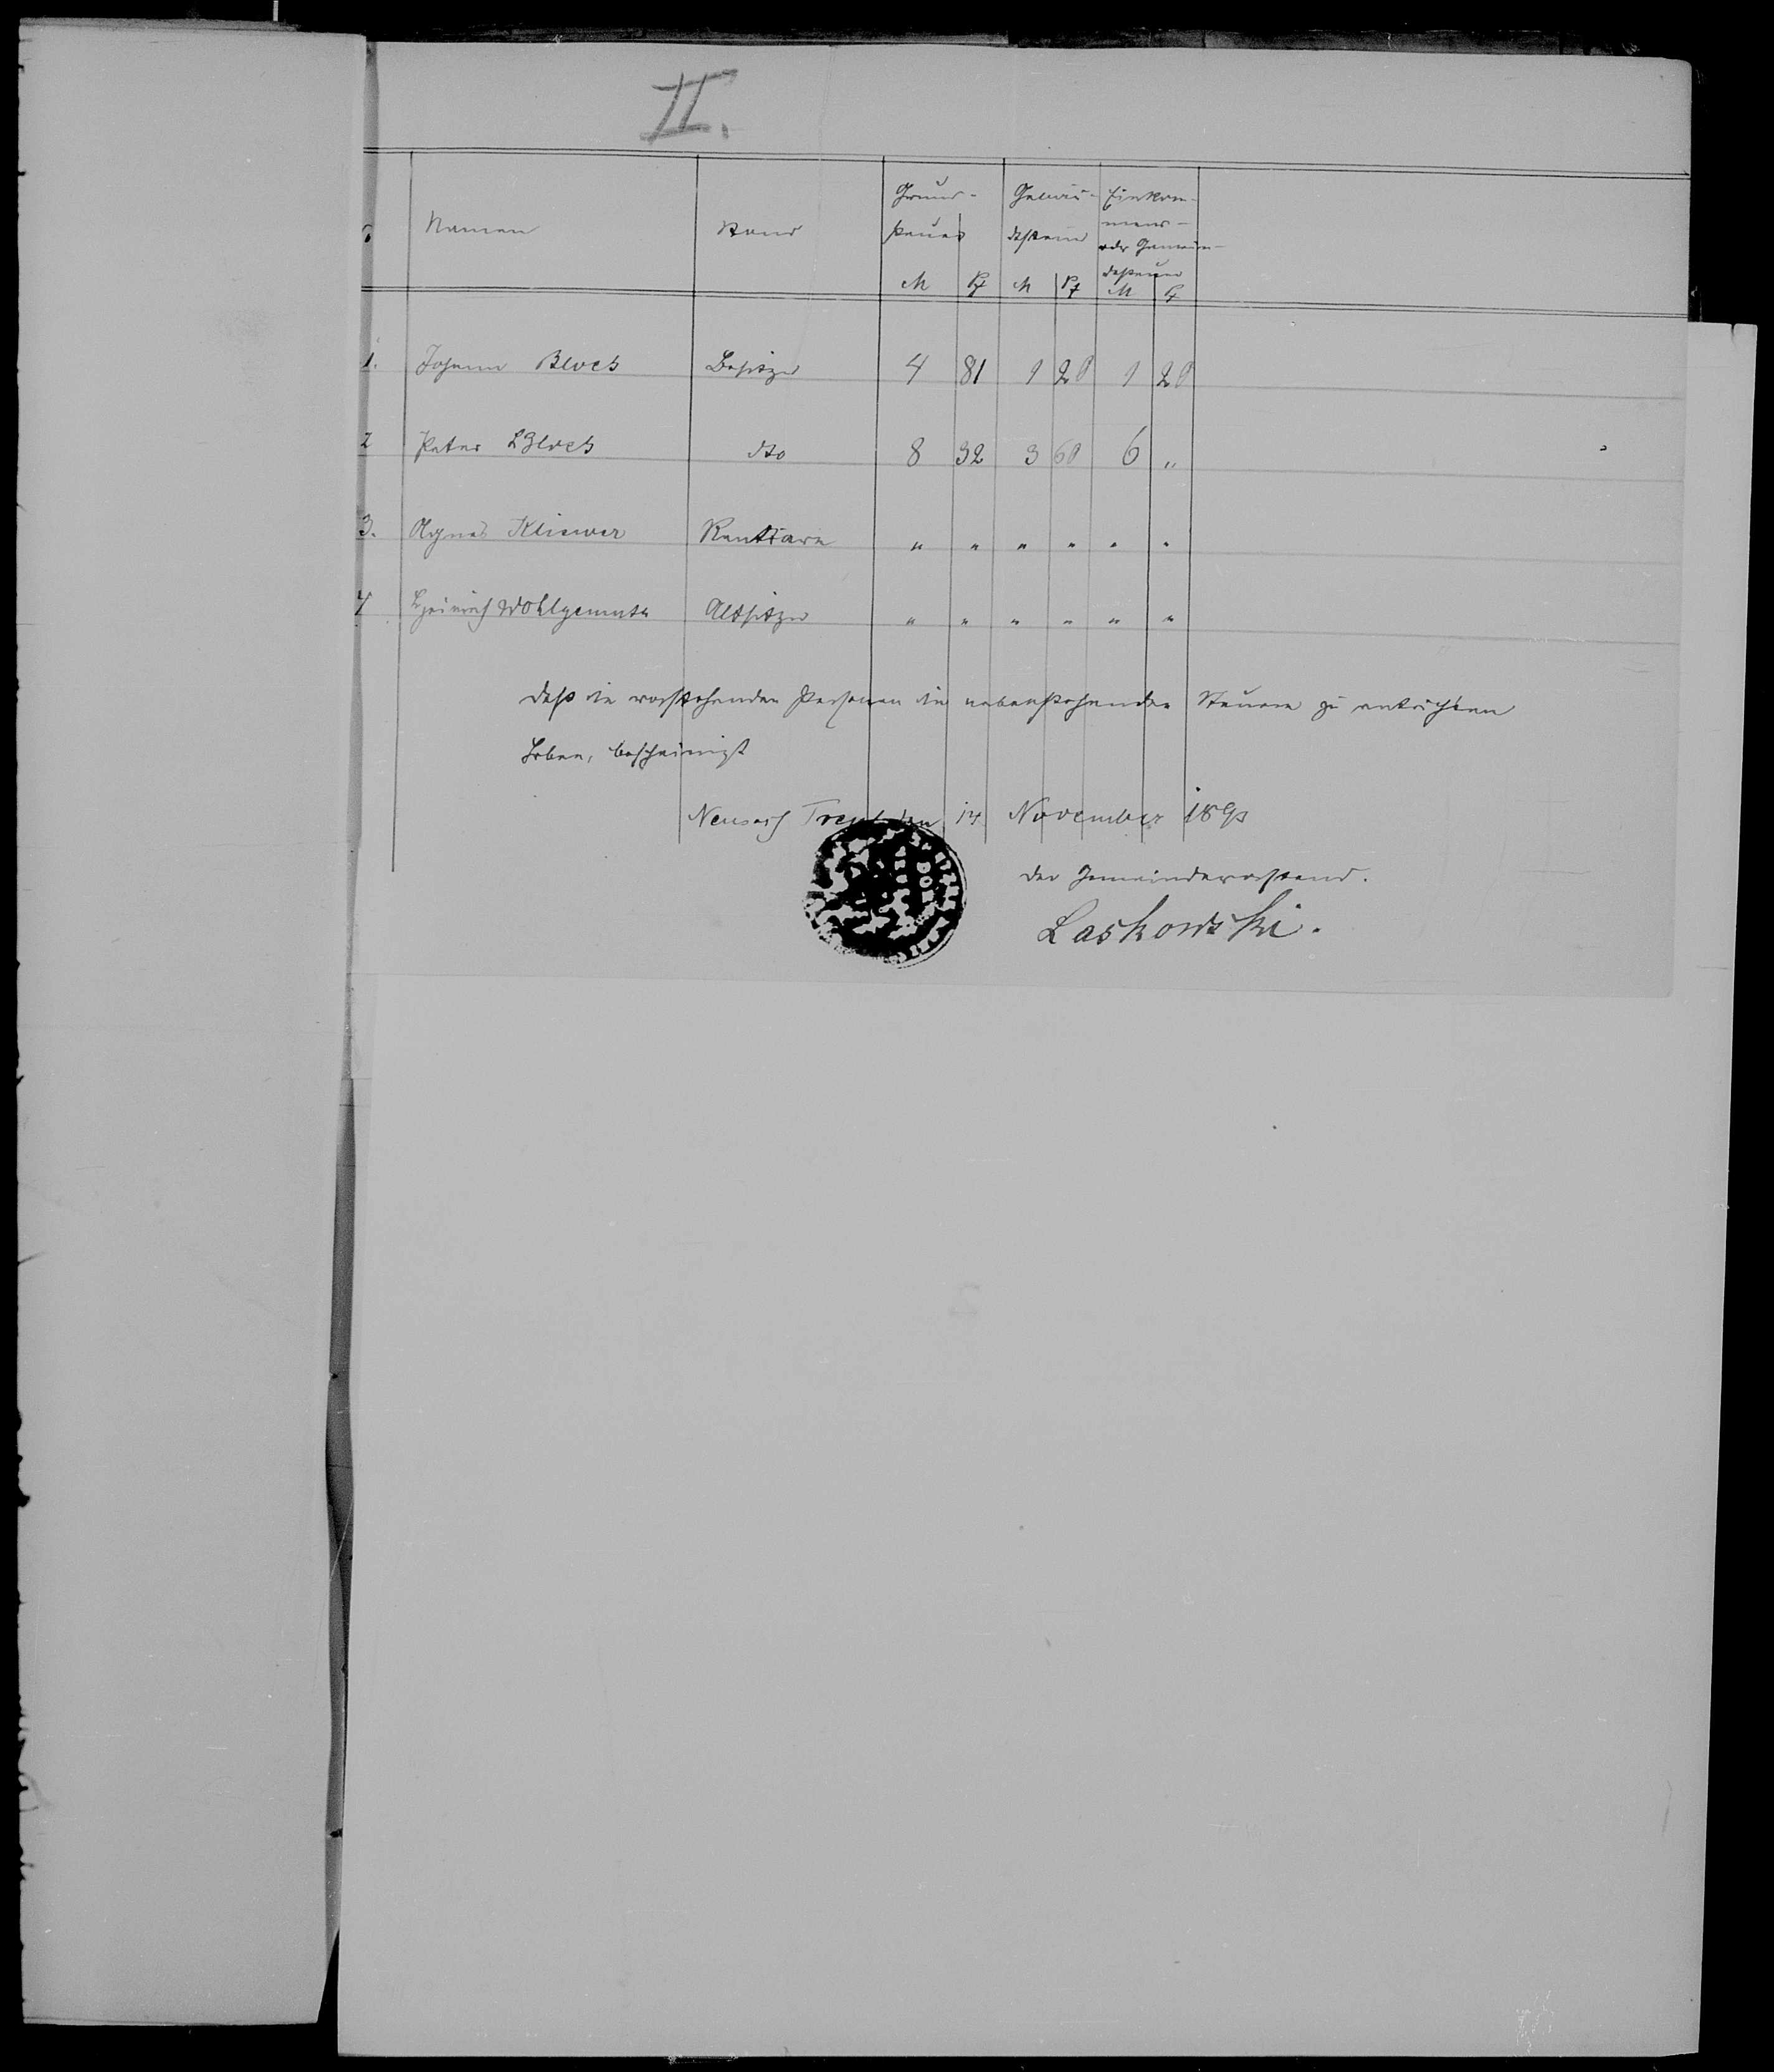 II.
Namen Stand Grund- Gebäu- Einkom-
steuer desteuer mens-
oder Gemein-
desteuer
M Pf M Pf M Pf
1. Johann Block Besitzer 4 81 1 20 1 20
2 Peter Block dto 8 32 3 60 6 "
3. Agnes Kliewer Rentiere " " " " " "
4 Heinrich Wohlgemuth Altsitzer " " " " " "
Daß die vorstehenden Personen die nebenstehenden Steuern zu entrichten
haben, bescheinigt
Neusass Treul den 14 November 1893
Der Gemeindevorstand.
Laskowski.